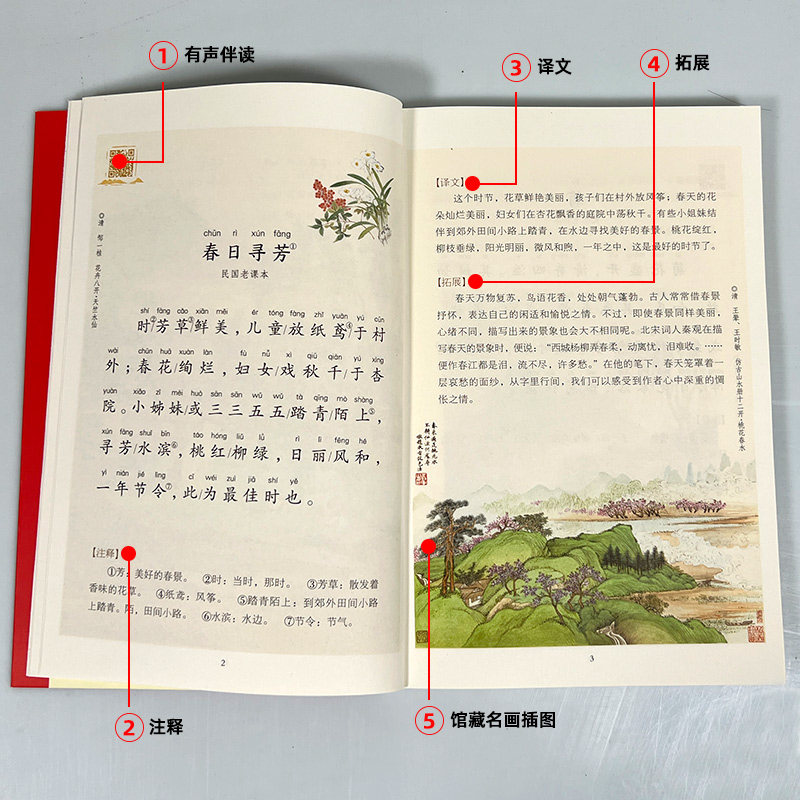 ① 有声伴读
③ 译文
④ 拓展
◎清 邹一桂 花卉八开·天竺水仙
chūn rì xún fāng
春日寻芳①
民国老课本
shí fāng cǎo xiān měi ér tóng fàng zhǐ yuān yú cūn
时②芳草③鲜美，儿童/放纸鸢④于村
wài chūn huā xuàn làn fù nǚ xì qiū qiān yú xìng
外；春花/绚烂，妇女/戏秋千/于杏
yuàn xiǎo zǐ mèi huò sān sān wǔ wǔ tà qīng mò shàng
院。小姊妹/或三三五五/踏青/陌上⑤，
xún fāng shuǐ bīn táo hóng liǔ lǜ rì lì fēng hé
寻芳/水滨⑥，桃红/柳绿，日丽/风和，
yì nián jié lìng cǐ wéi zuì jiā shí yě
一年节令⑦，此/为最佳时也。
【注释】
①芳：美好的春景。 ②时：当时，那时。 ③芳草：散发着
香味的花草。 ④纸鸢：风筝。 ⑤踏青陌上：到郊外田间小路
上踏青。陌，田间小路。 ⑥水滨：水边。 ⑦节令：节气。
2
【译文】
这个时节，花草鲜艳美丽，孩子们在村外放风筝；春天的花
朵灿烂美丽，妇女们在杏花飘香的庭院中荡秋千。有些小姐妹结
伴到郊外田间小路上踏青，在水边寻找美好的春景。桃花绽红，
柳枝垂绿，阳光明丽，微风和煦，一年之中，这是最好的时节了。
【拓展】
春天万物复苏，鸟语花香，处处朝气蓬勃。古人常常借春景
抒怀，表达自己的闲适和愉悦之情。不过，即使春景同样美丽，
心绪不同，描写出来的景象也会大不相同呢。北宋词人秦观在描
写春天的景象时，便说：“西城杨柳弄春柔，动离忧，泪难收。……
便作春江都是泪，流不尽，许多愁。”在他的笔下，春天笼罩着一
层哀愁的面纱，从字里行间，我们可以感受到作者心中深重的惆
怅之情。
◎清 王翚、王时敏 仿古山水册十二开·桃花春水
3
② 注释
⑤ 馆藏名画插图